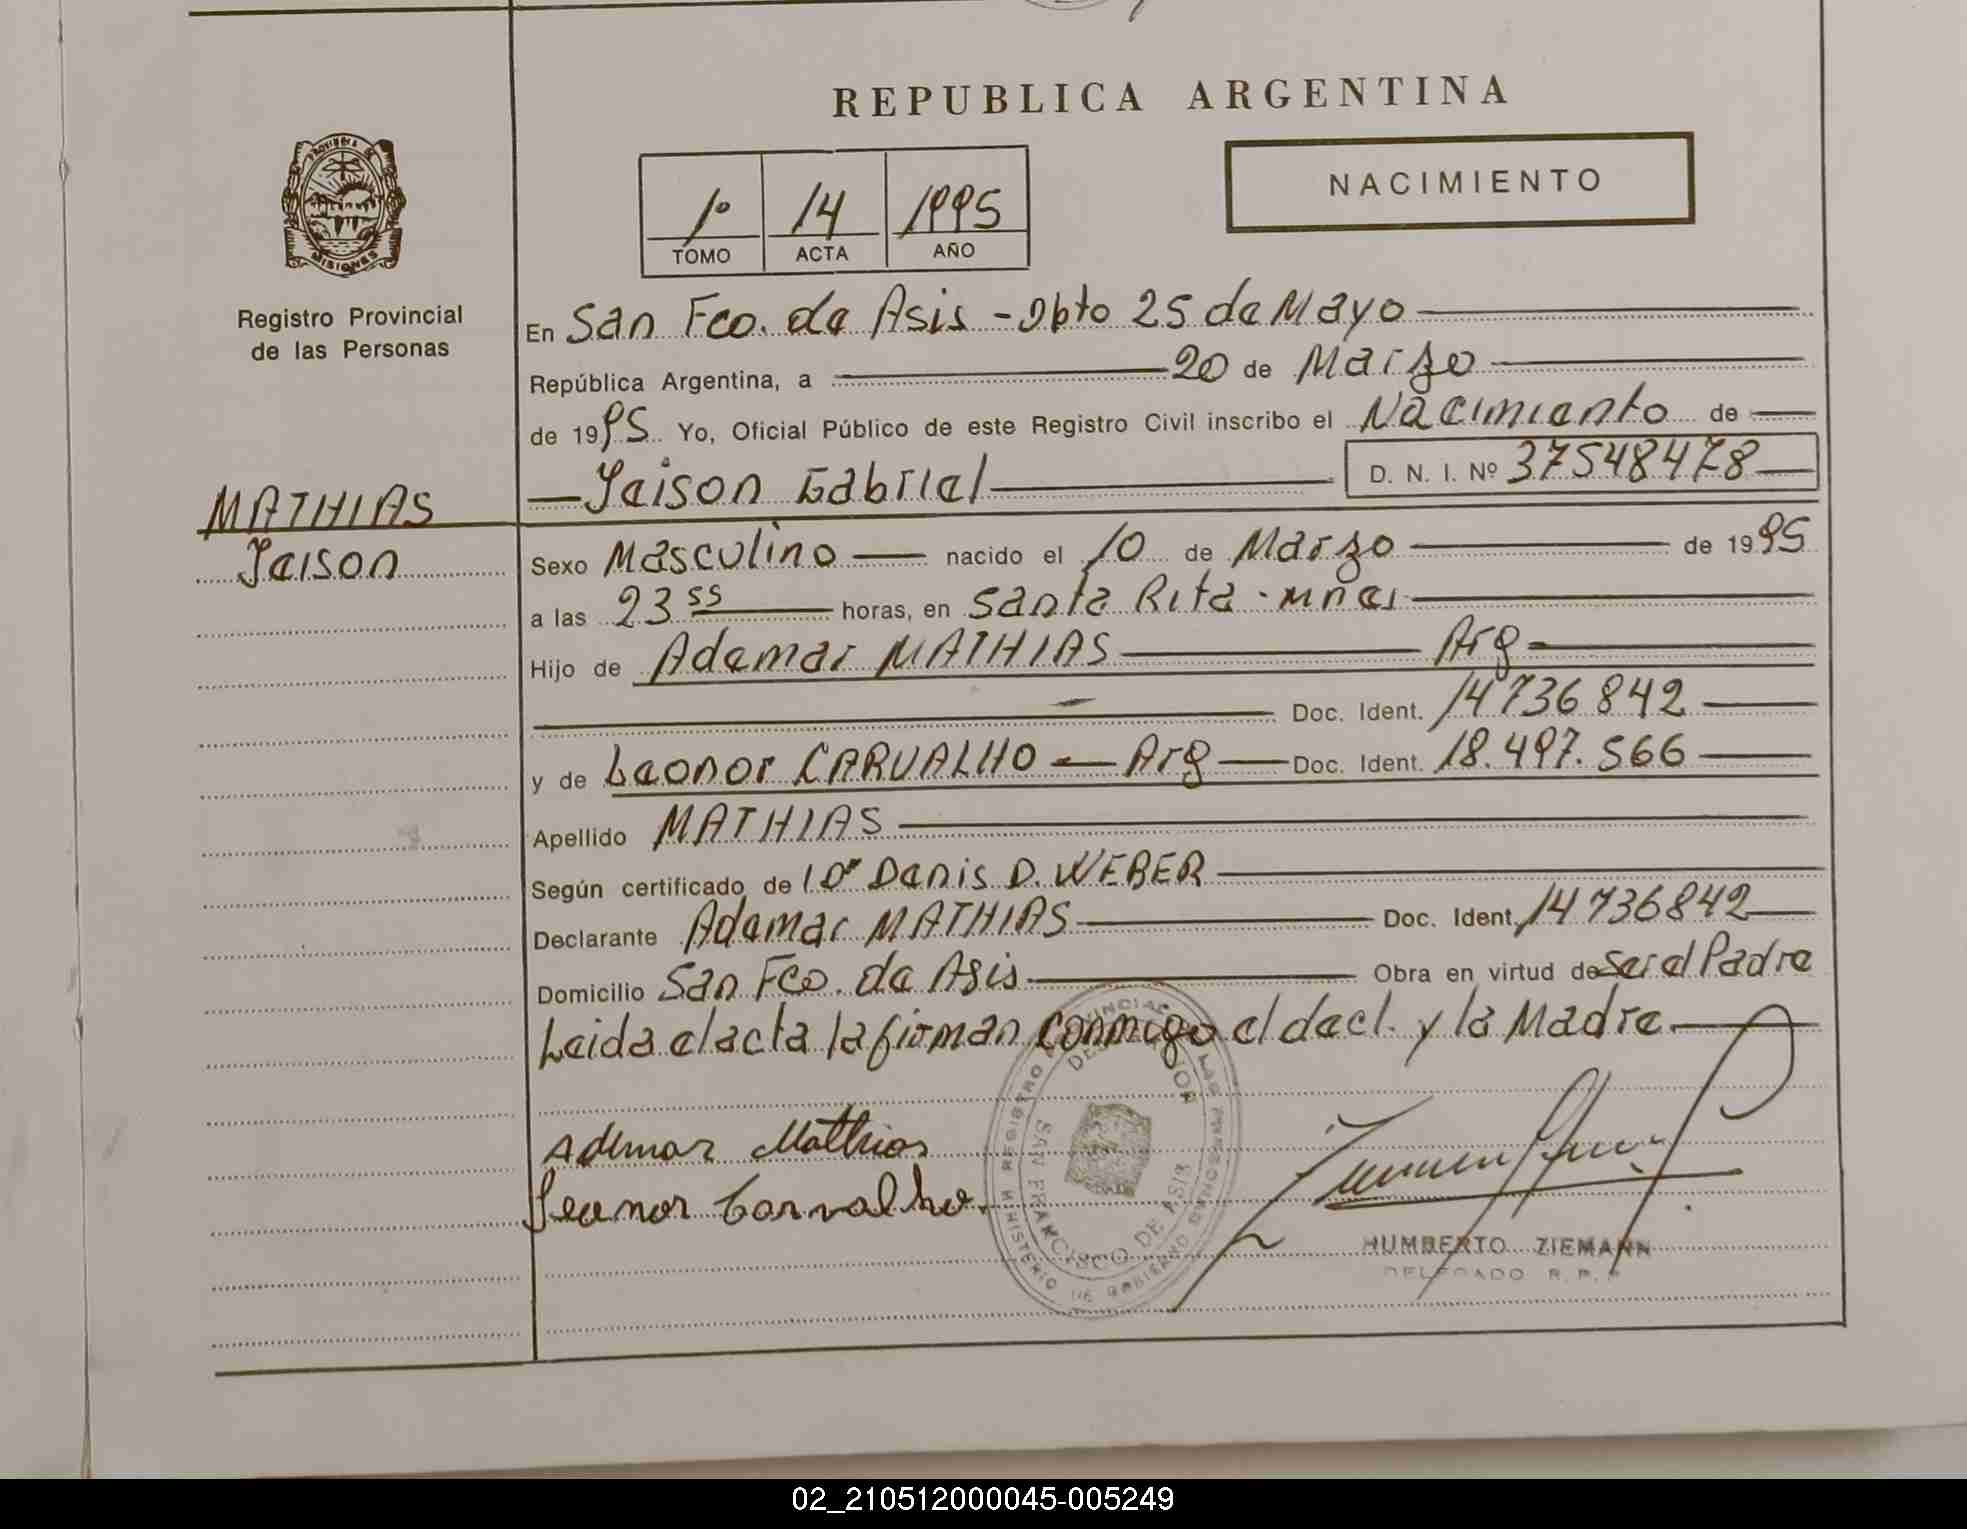 REPUBLICA ARGENTINA
NACIMIENTO
1º 14 1995
TOMO ACTA AÑO
PROVINCIA DE MISIONES
Registro Provincial
de las Personas
En San Fco. de Asis - Dbto 25 de Mayo
República Argentina, a 20 de Marzo
de 1995 Yo, Oficial Público de este Registro Civil inscribo el Nacimiento de
Jeison Gabriel D. N. I. Nº 37548478
MATHIAS
Jeison
Sexo Masculino nacido el 10 de Marzo de 1995
a las 23 55 horas, en Santa Rita - Mnes
Hijo de Ademar MATHIAS Arg
Doc. Ident. 14736842
y de Leonor CARVALHO - Arg - Doc. Ident. 18.497.566
Apellido MATHIAS
Según certificado de Denis D. WEBER
Declarante Ademar MATHIAS Doc. Ident. 14736842
Domicilio San Fco. de Asis Obra en virtud de ser el Padre
Leida el acta la firman conmigo el decl. y la Madre
Ademar Mathias
Leonor Carvalho.
REGISTRO PROVINCIAL DE LAS PERSONAS
MINISTERIO DE GOBIERNO
SAN FRANCISCO DE ASIS
HUMBERTO ZIEMANN
DELEGADO R. P. P.
02_210512000045-005249